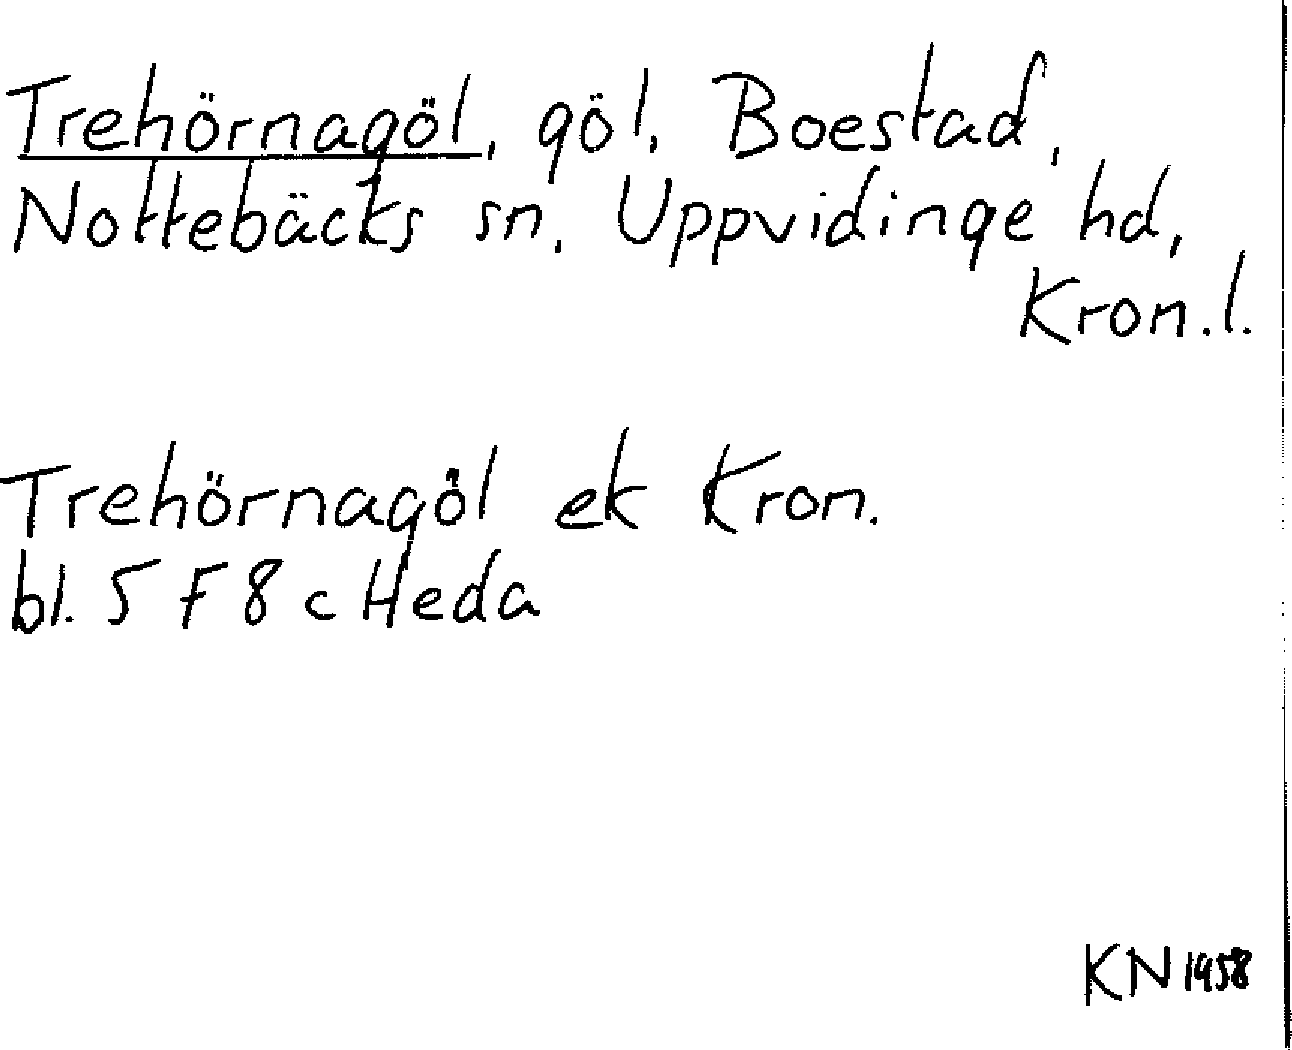 Trehörnagöl, göl, Boestad,
Nottebäcks sn, Uppvidinge hd,
Kron.l.
Trehörnagöl ek Kron.
bl. 5 F 8 c Heda
KN 1958